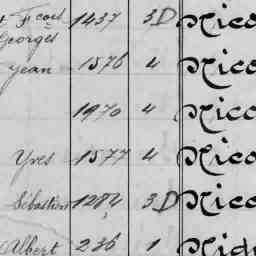 1437 3D Nico
Georges
Jean 1576 4 Nico
1970 4 Nico
Yves 1577 4 Nico
Sébastien 1284 3D Nico
Albert 236 1 Nid